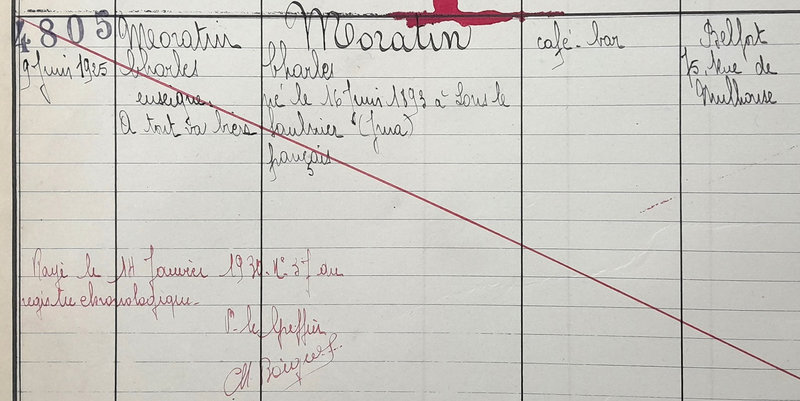 4805
9 Juin 1925
Moratin
Charles
enseigne
A tout va bien
Moratin
Charles
né le 16 Juin 1893 à Lons le
Saulnier (Jura)
français
café-bar
Belfort
15, Rue de
Mulhouse
Rayé le 14 Janvier 1930. N° 37 du
registre chronologique.
P. le Greffier